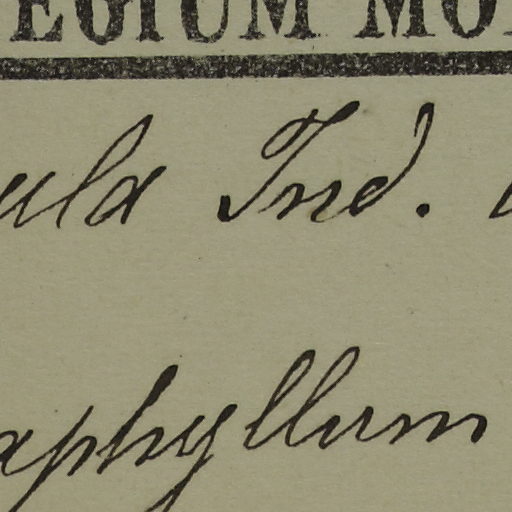 EGIUM MO
ula Ind.
aphyllum